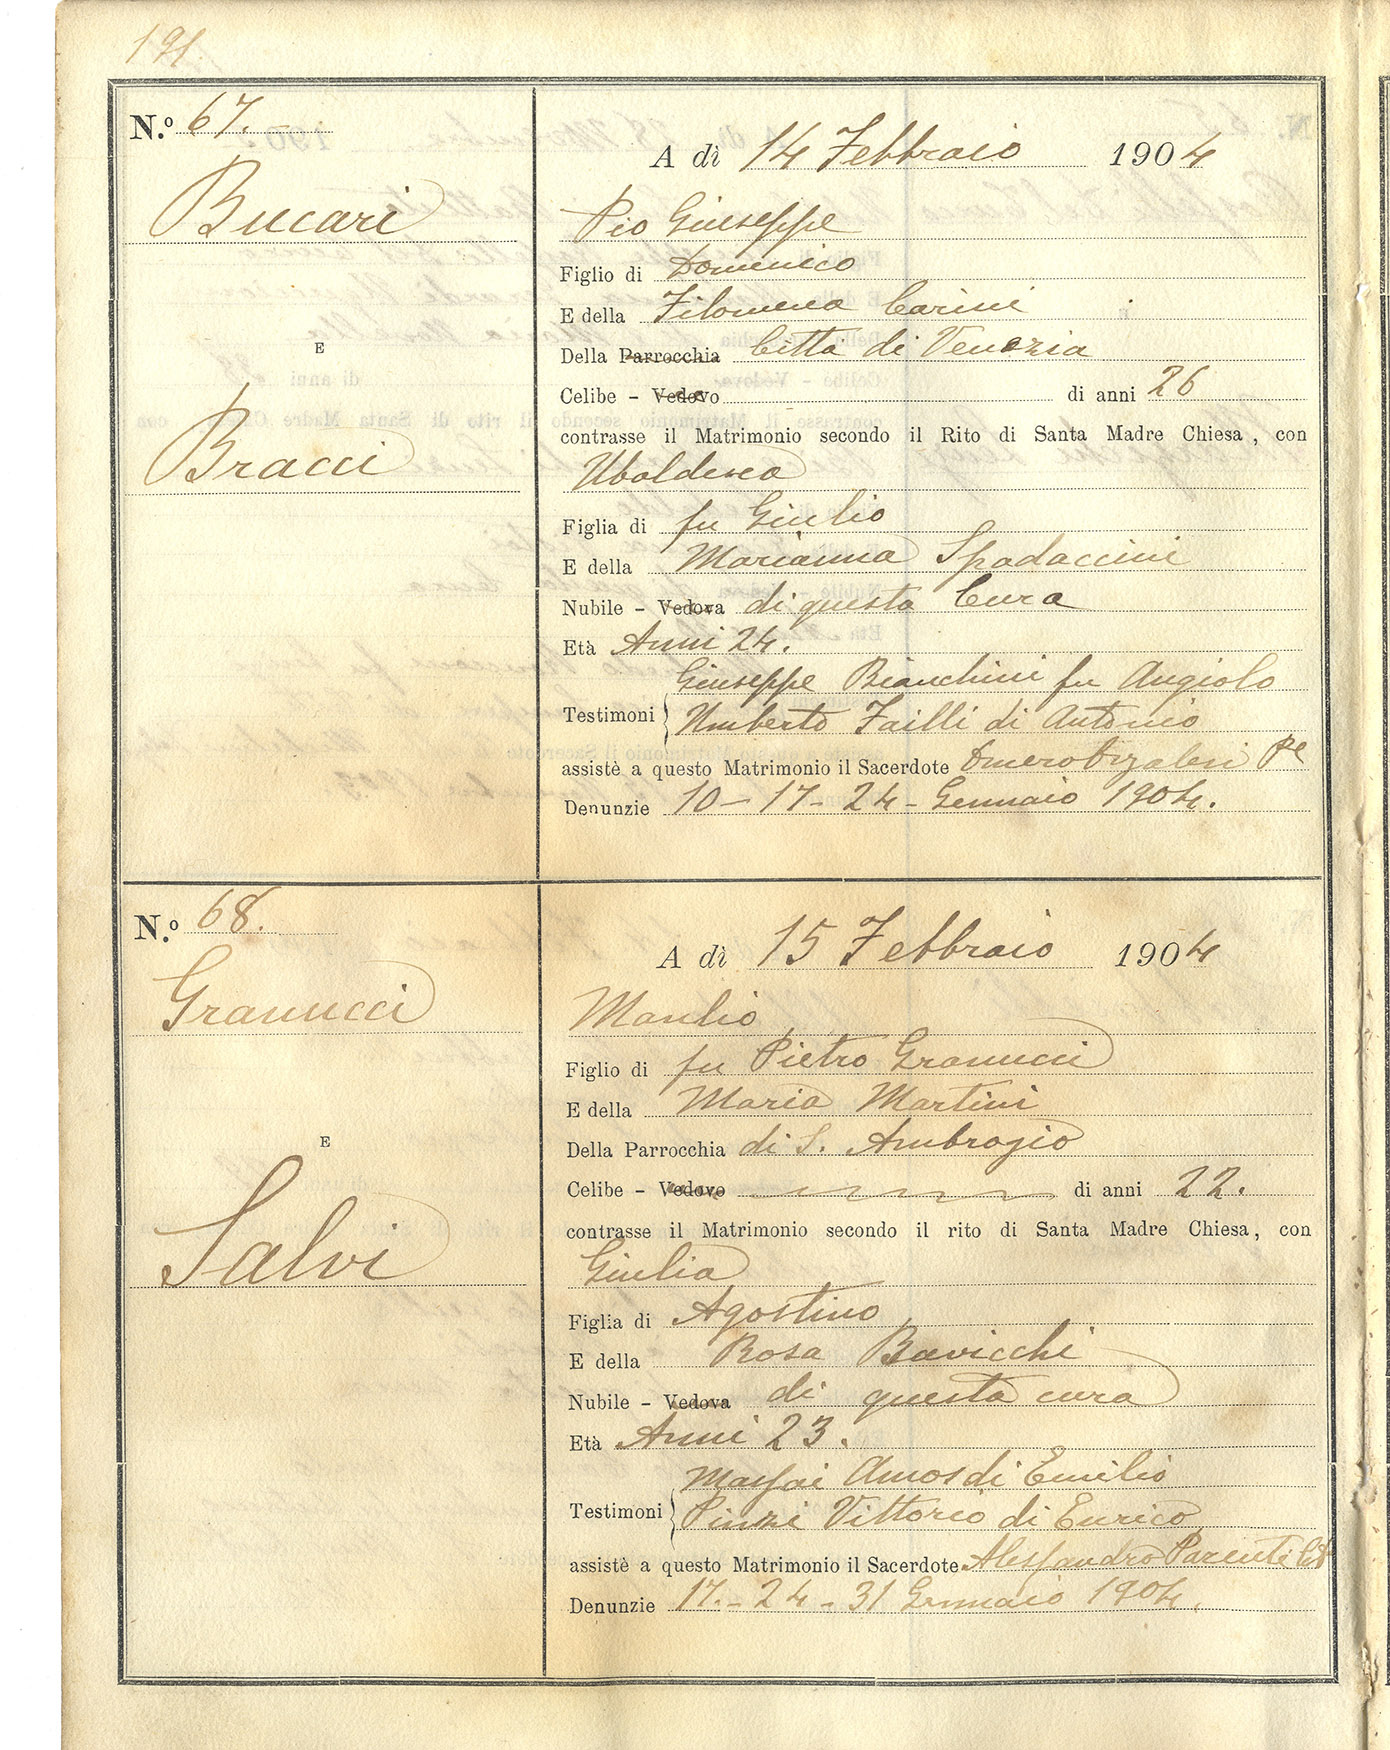 191.
N.º 67.
Bucari
E
Bracci
A dì 14 Febbraio 1904
Pio Giuseppe
Figlio di Domenico
E della Filomena Carini
Della Parrocchia Citta di Venezia
Celibe - Vedovo di anni 26
contrasse il Matrimonio secondo il Rito di Santa Madre Chiesa, con
Ubaldesca
Figlia di fu Giulio
E della Marianna Spadaccini
Nubile - Vedova di questa Cura
Età Anni 24.
Giuseppe Bianchini fu Angiolo
Testimoni Umberto Failli di Antonio
assistè a questo Matrimonio il Sacerdote
Denunzie 10 - 17 - 24 - Gennaio 1904.
N.º 68.
Granucci
E
Salvi
A dì 15 Febbraio 1904
Manlio
Figlio di fu Pietro Granucci
E della Maria Martini
Della Parrocchia di S. Ambrogio
Celibe - Vedovo di anni 22.
contrasse il Matrimonio secondo il rito di Santa Madre Chiesa, con
Giulia
Figlia di Agostino
E della Rosa Bavicchi
Nubile - Vedova di questa cura
Età Anni 23.
Massai Amos di Emilio
Testimoni Pinzi Vittorio di Enrico
assistè a questo Matrimonio il Sacerdote Alessandro Parenti
Denunzie 17. - 24 - 31 Gennaio 1904.